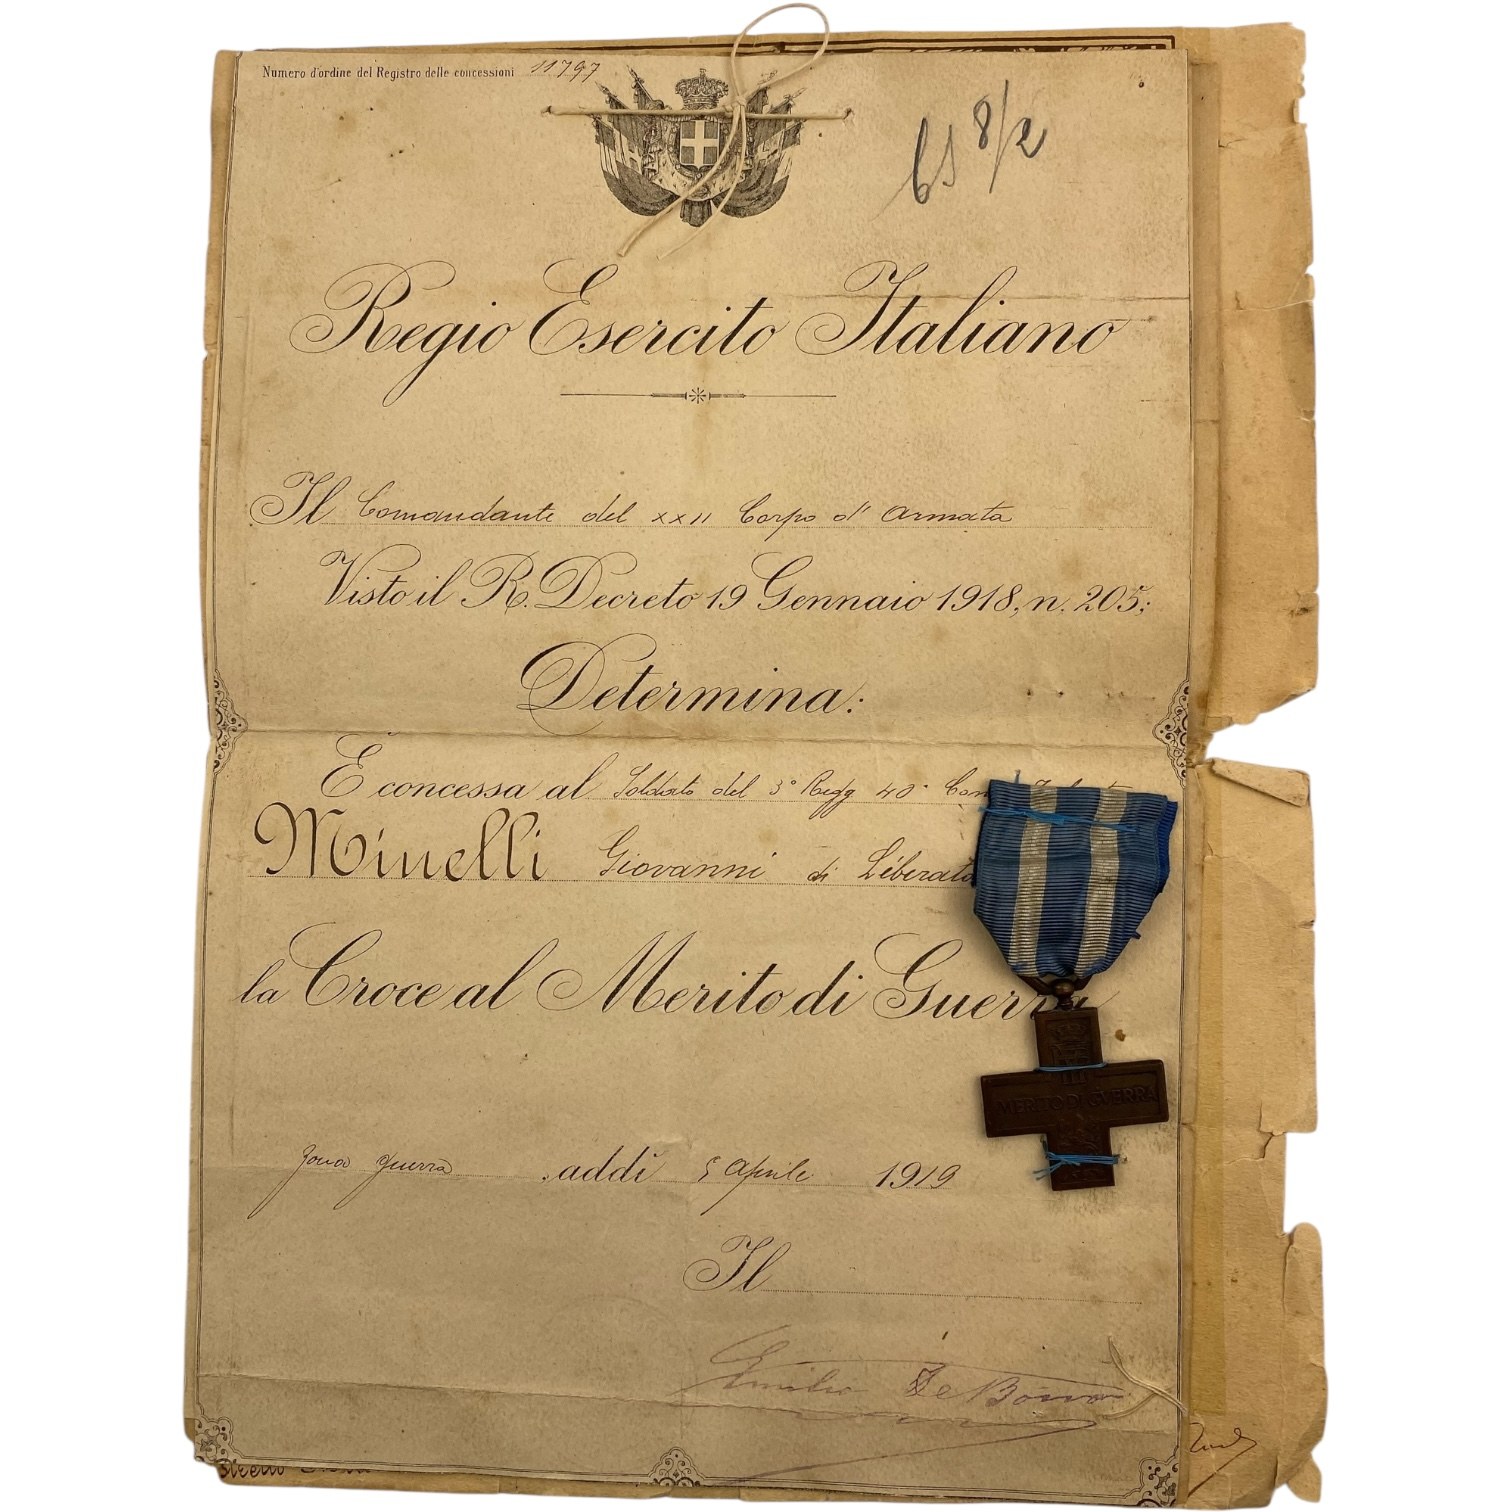 Numero d'ordine del Registro delle concessioni 11797
65 8/2
Regio Esercito Italiano
Il Comandante del XXII Corpo d' Armata
Visto il R. Decreto 19 Gennaio 1918, n. 205;
Determina:
È concessa al Soldato del 3° Regg 40° Com
Minelli Giovanni di Liberato
la Croce al Merito di Guerra
MERITO DI GVERRA
Zona guerra addì 5 Aprile 1919
Il
Emilio De Bono